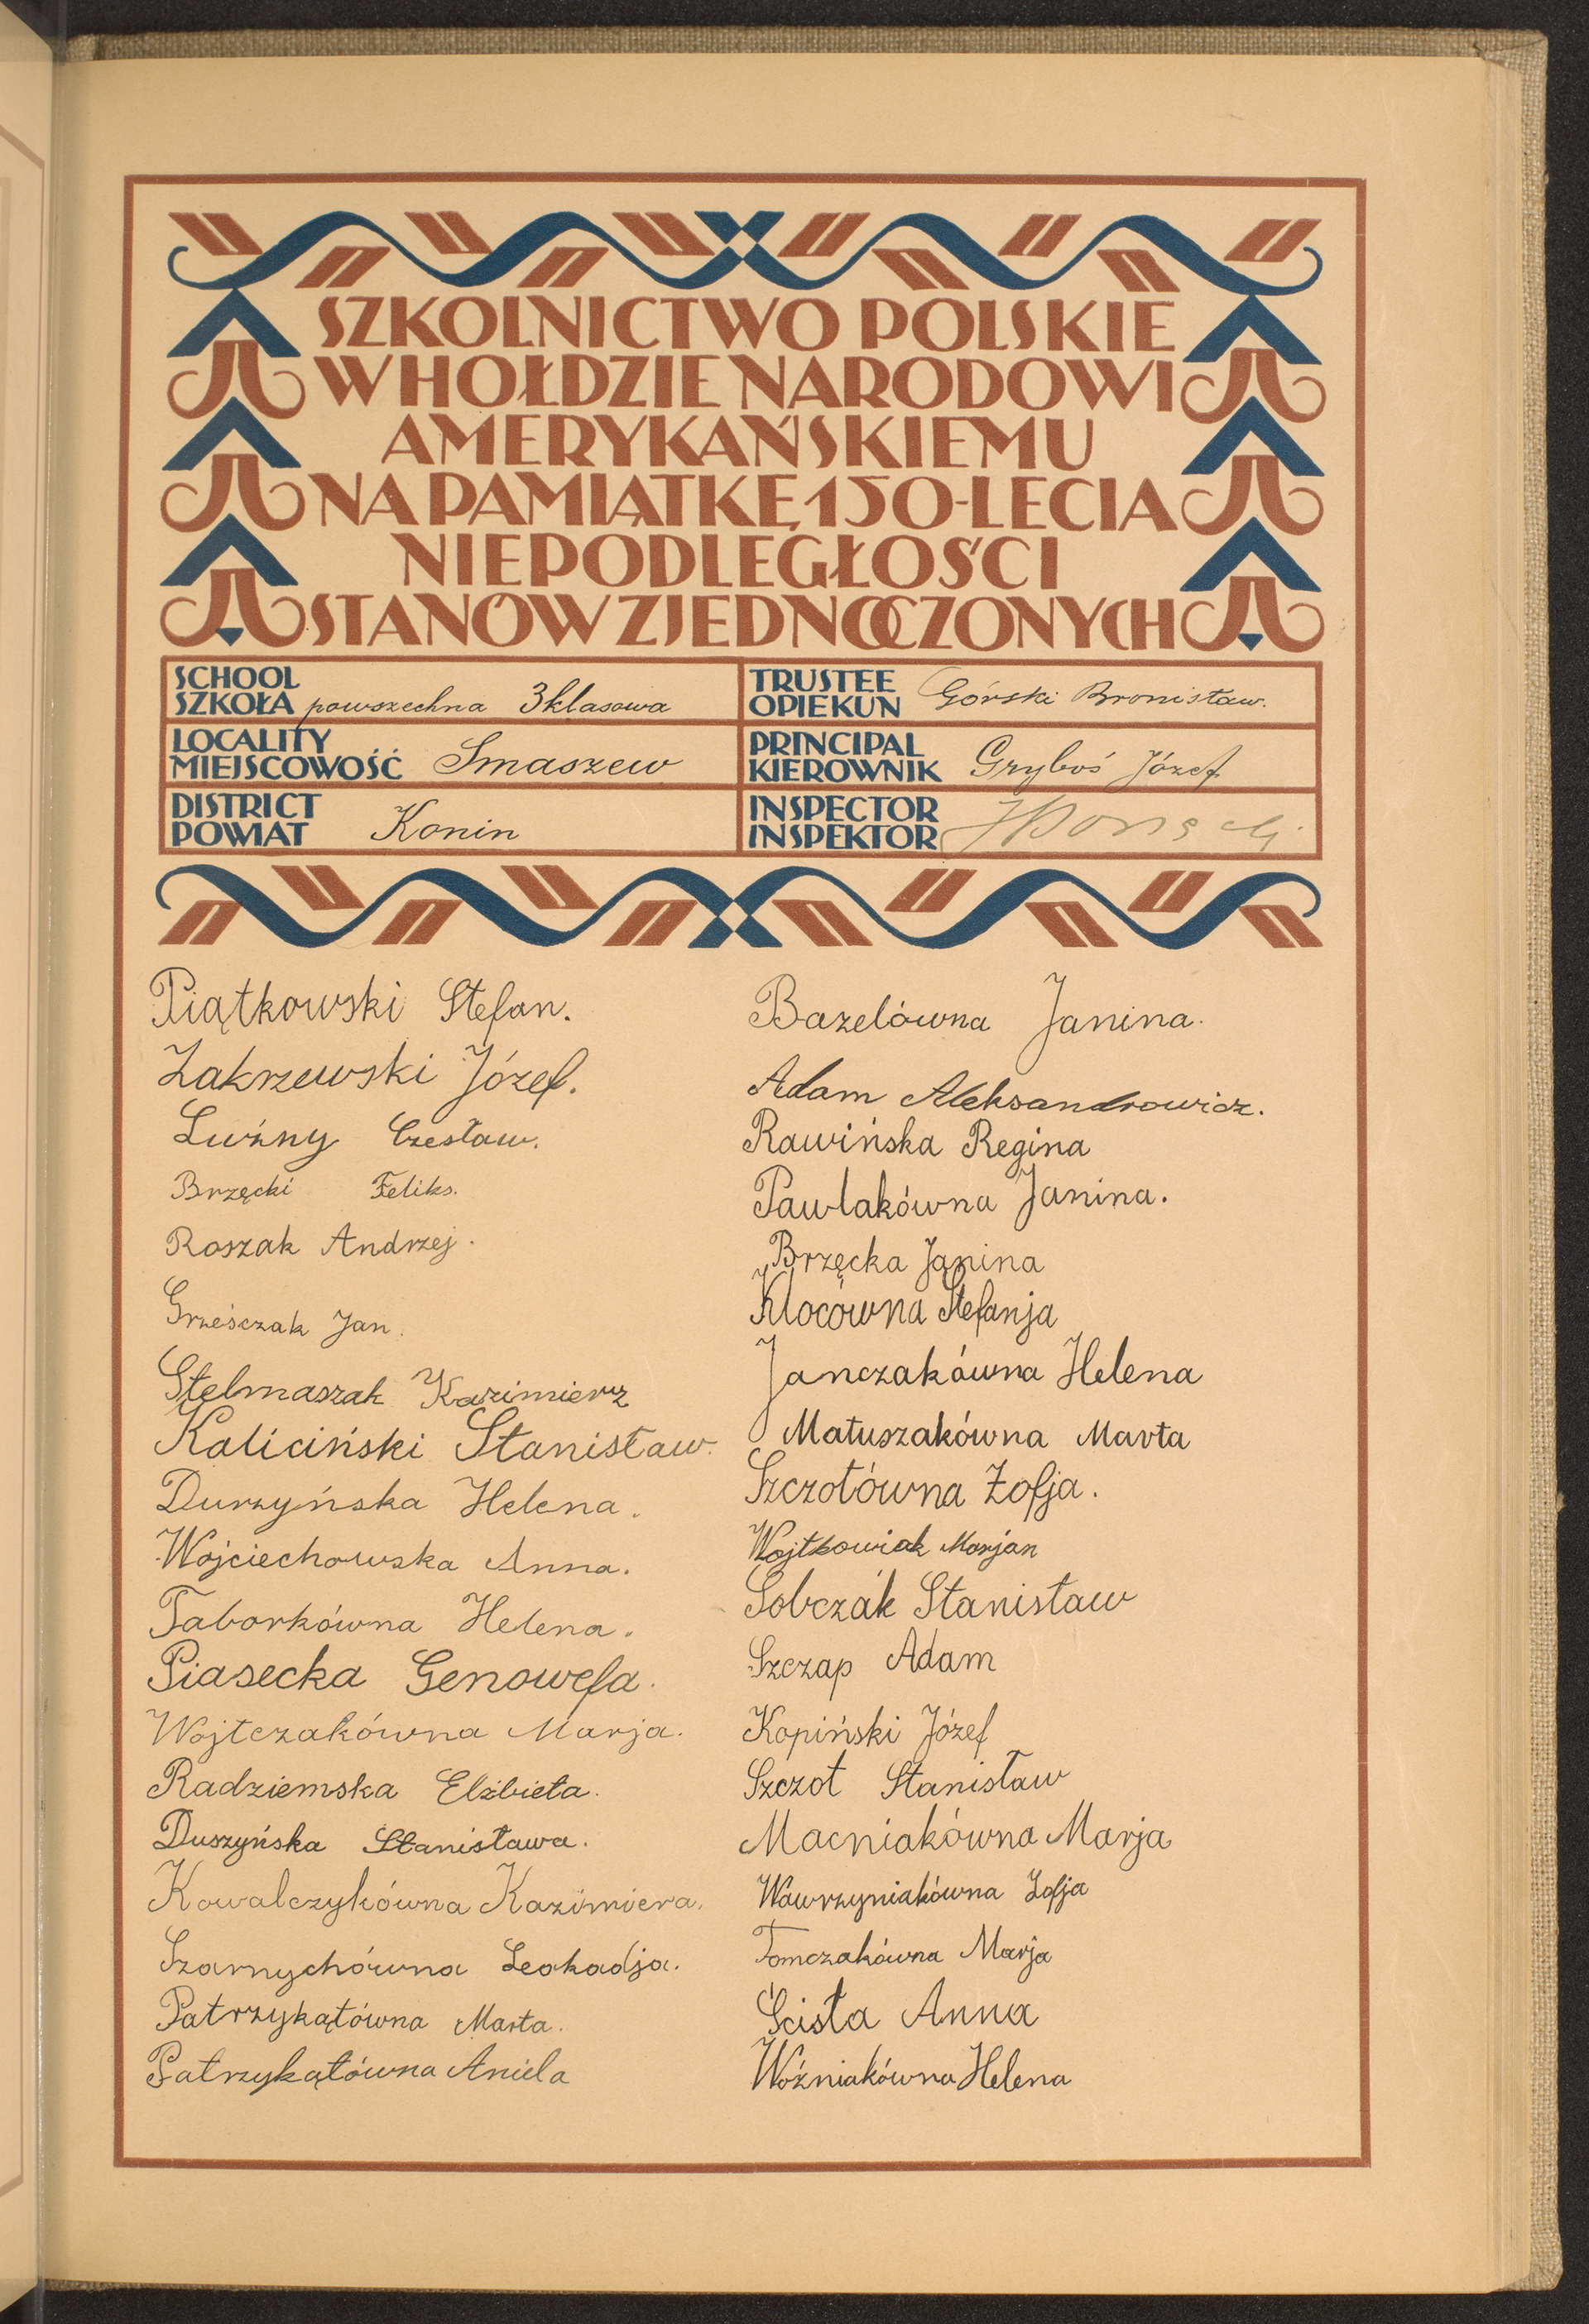 SZKOLNICTWO POLSKIE
W HOŁDZIE NARODOWI
AMERYKAŃSKIEMU
NA PAMIĄTKĘ 150-LECIA
NIEPODLEGŁOŚCI
STANÓW ZJEDNOCZONYCH
SCHOOL
SZKOŁA powszechna 3klasowa
TRUSTEE
OPIEKUN Górski Bronisław.
LOCALITY
MIEJSCOWOŚĆ Smaszew
PRINCIPAL
KIEROWNIK Gryboś Józef
DISTRICT
POWIAT Konin
INSPECTOR
INSPEKTOR
Piątkowski Stefan.
Zakrzewski Józef.
Luźny Czesław.
Brzęcki Feliks.
Roszak Andrzej.
Grześczak Jan.
Stelmaszak Kazimierz
Kaliciński Stanisław.
Durzyńska Helena.
Wojciechowska Anna.
Taborkówna Helena.
Piasecka Genowefa.
Wojtczakówna Marja.
Radziemska Elżbieta.
Duszyńska Stanisława.
Kowalczykówna Kazimiera.
Szarnychówna Leokadja.
Patrzykątówna Marta.
Patrzykątówna Aniela
Bazelówna Janina.
Adam Aleksandrowicz.
Rawińska Regina
Pawlakówna Janina.
Brzęcka Janina
Klocówna Stefanja
Janczakówna Helena
Matuszakówna Marta
Szczotówna Zofja.
Wojtkowiak Marjan
Sobczak Stanisław
Szczap Adam
Kopiński Józef
Szczot Stanisław
Macniakówna Marja
Wawrzyniakówna Zofja
Tomczakówna Marja
Ścisła Anna
Woźniakówna Helena